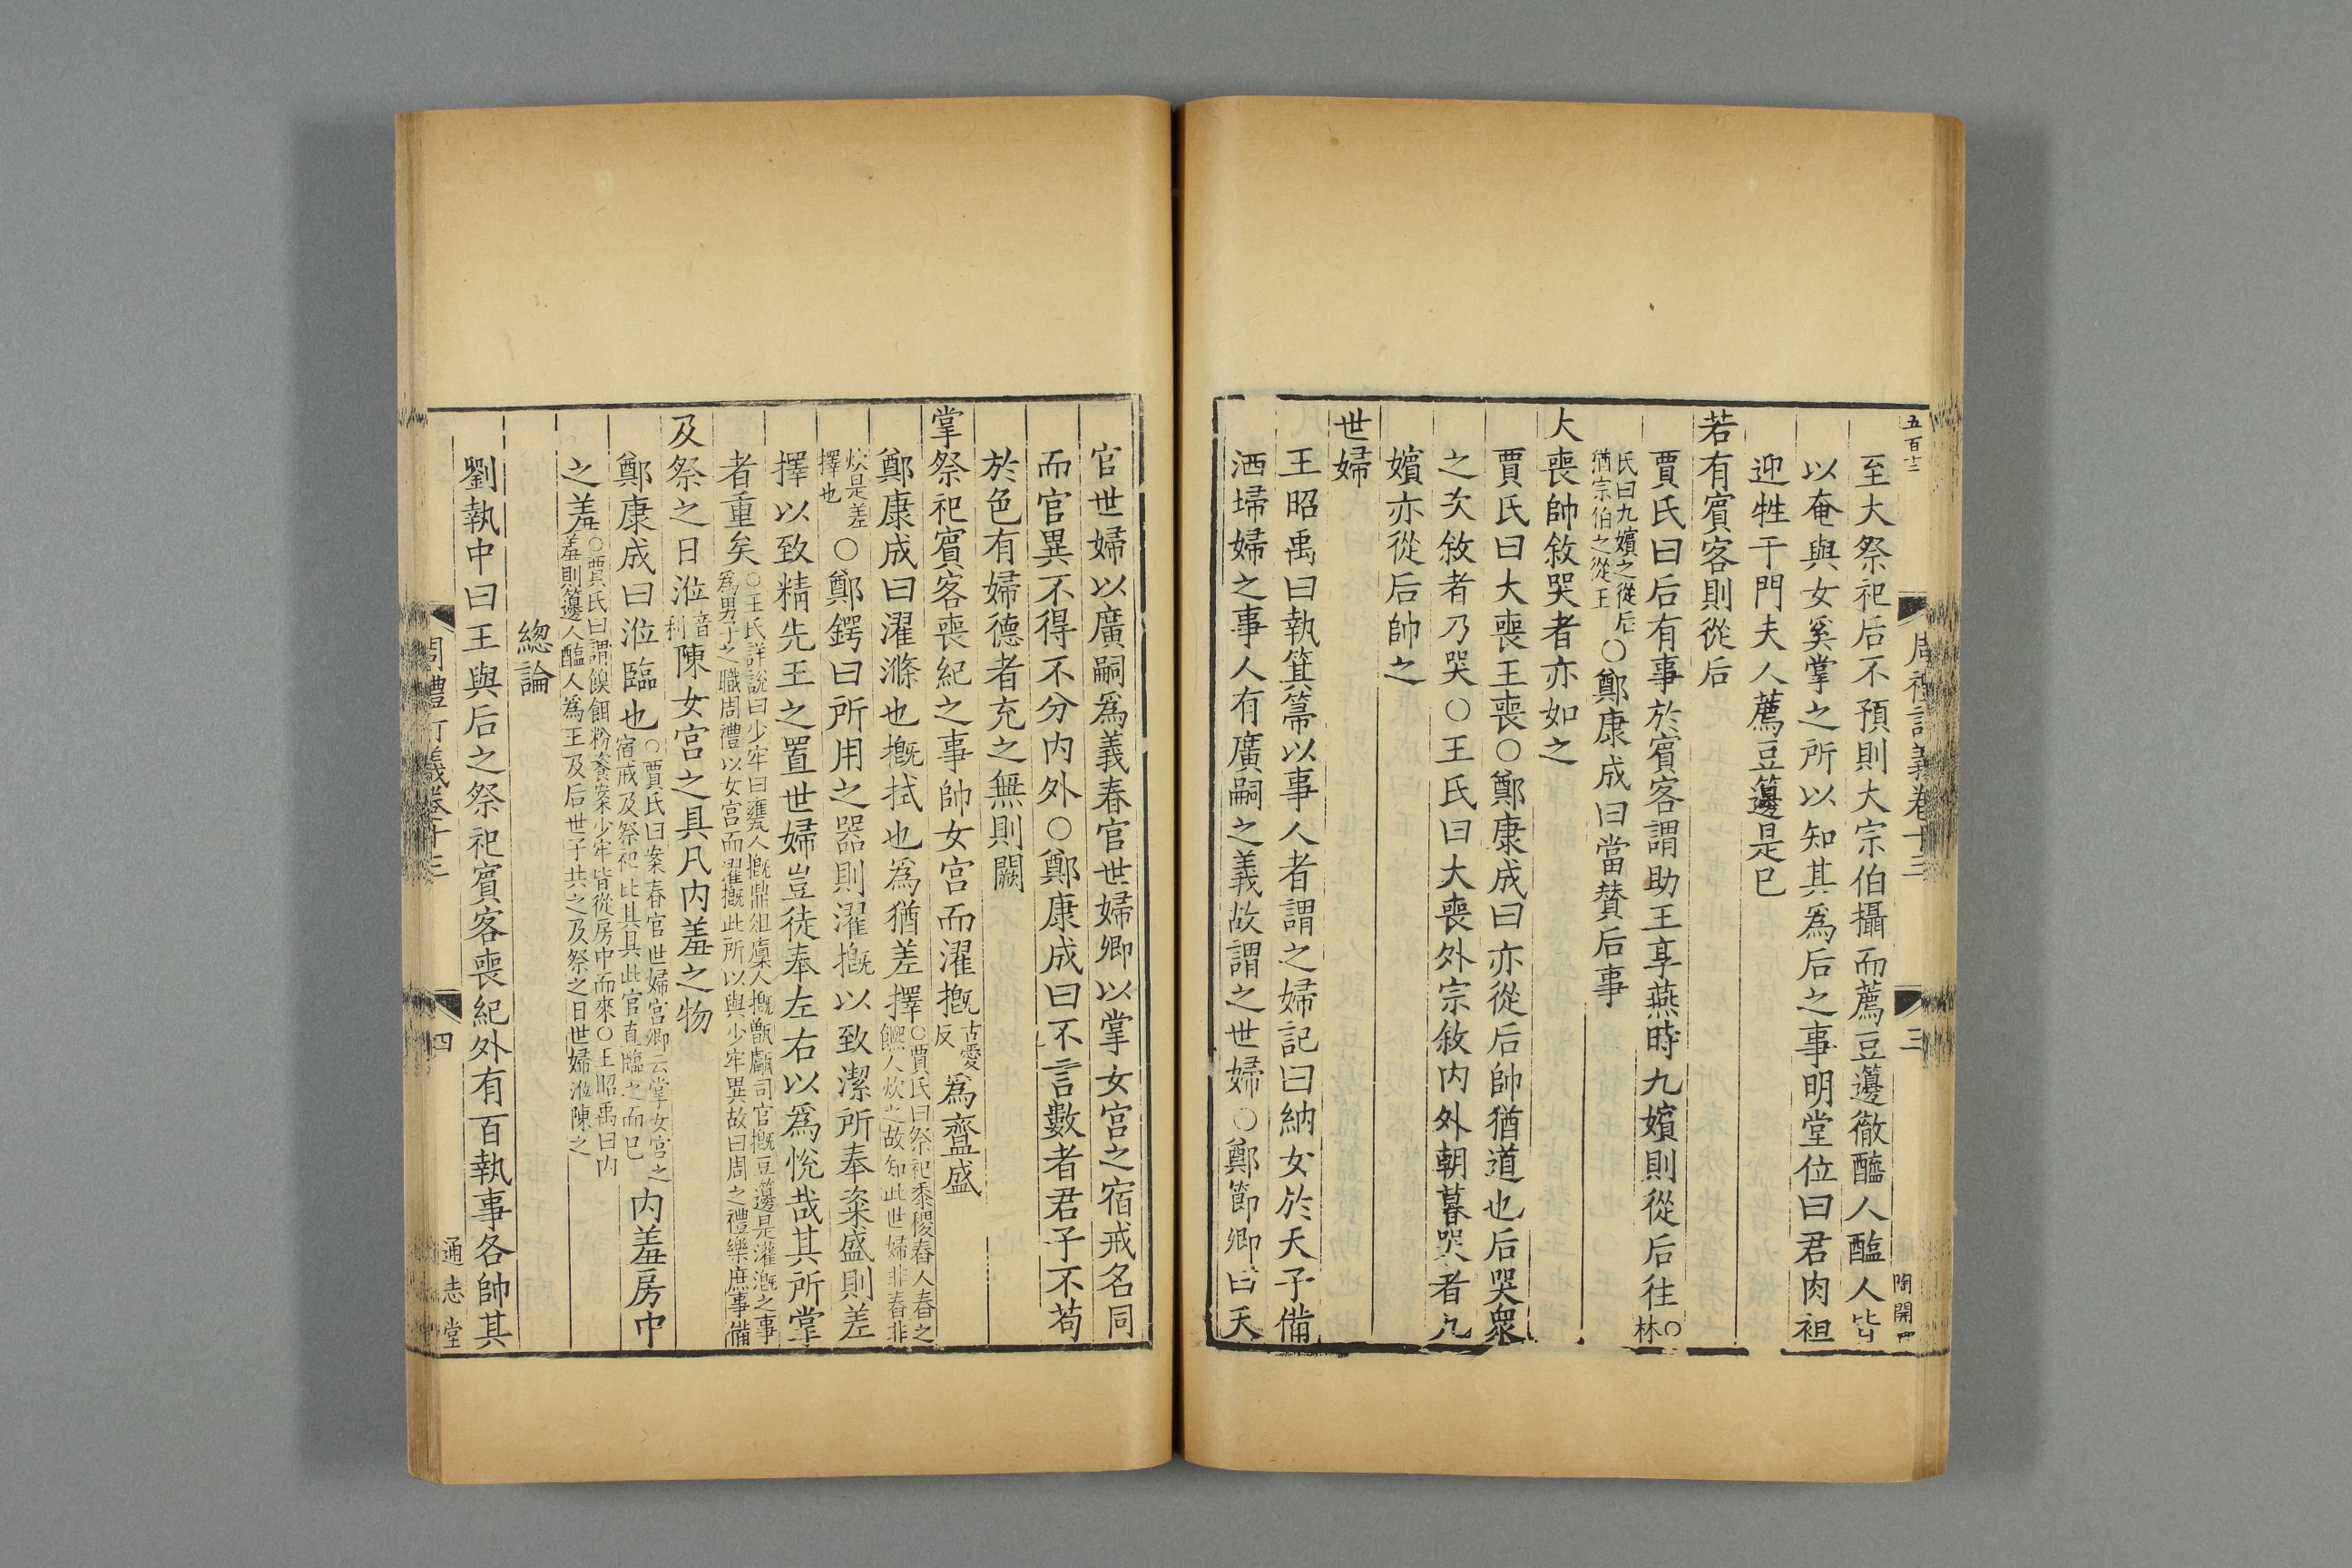 五百十三
周禮訂義卷十三
三
陶開
至大祭祀后不預則大宗伯攝而薦豆籩徹醯人醢人皆
以奄與女奚掌之所以知其爲后之事明堂位曰君肉袒
迎牲于門夫人薦豆籩是已
若有賓客則從后
賈氏曰后有事於賓客謂助王享燕時九嬪則從后往○林
氏曰九嬪之從后猶宗伯之從王○鄭康成曰當賛后事
大喪帥敘哭者亦如之
賈氏曰大喪王喪○鄭康成曰亦從后帥猶道也后哭衆
之次敘者乃哭○王氏曰大喪外宗敘内外朝暮哭者九
嬪亦從后帥之
世婦
王昭禹曰執箕箒以事人者謂之婦記曰納女於天子備
洒埽婦之事人有廣嗣之義故謂之世婦○鄭節卿曰天
官世婦以廣嗣爲義春官世婦卿以掌女宫之宿戒名同
而官異不得不分内外○鄭康成曰不言數者君子不苟
於色有婦德者充之無則闕
掌祭祀賓客喪紀之事帥女宫而濯摡古愛反爲齍盛
鄭康成曰濯滌也摡拭也爲猶差擇○賈氏曰祭祀黍稷舂人舂之饎人炊之故知此世婦非舂非
炊是差擇也○鄭鍔曰所用之器則濯摡以致潔所奉粢盛則差
擇以致精先王之置世婦豈徒奉左右以爲悅哉其所掌
者重矣○王氏詳說曰少牢曰雍人摡鼎俎廩人摡甑甗司官摡豆籩是濯漑之事爲男子之職周禮以女宫而濯摡此所以與少牢異故曰周之禮樂庶事備
及祭之日涖音利陳女宫之具凡内羞之物
鄭康成曰涖臨也○賈氏曰案春官世婦宫卿云掌女宫之宿戒及祭祀比其具此官直臨之而已内羞房中
之羞○賈氏曰謂餱餌粉餈案少牢皆從房中而來○王昭禹曰内羞則籩人醢人爲王及后世子共之及祭之日世婦涖陳之
緫論
劉執中曰王與后之祭祀賓客喪紀外有百執事各帥其
周禮訂義卷十三
四
通志堂